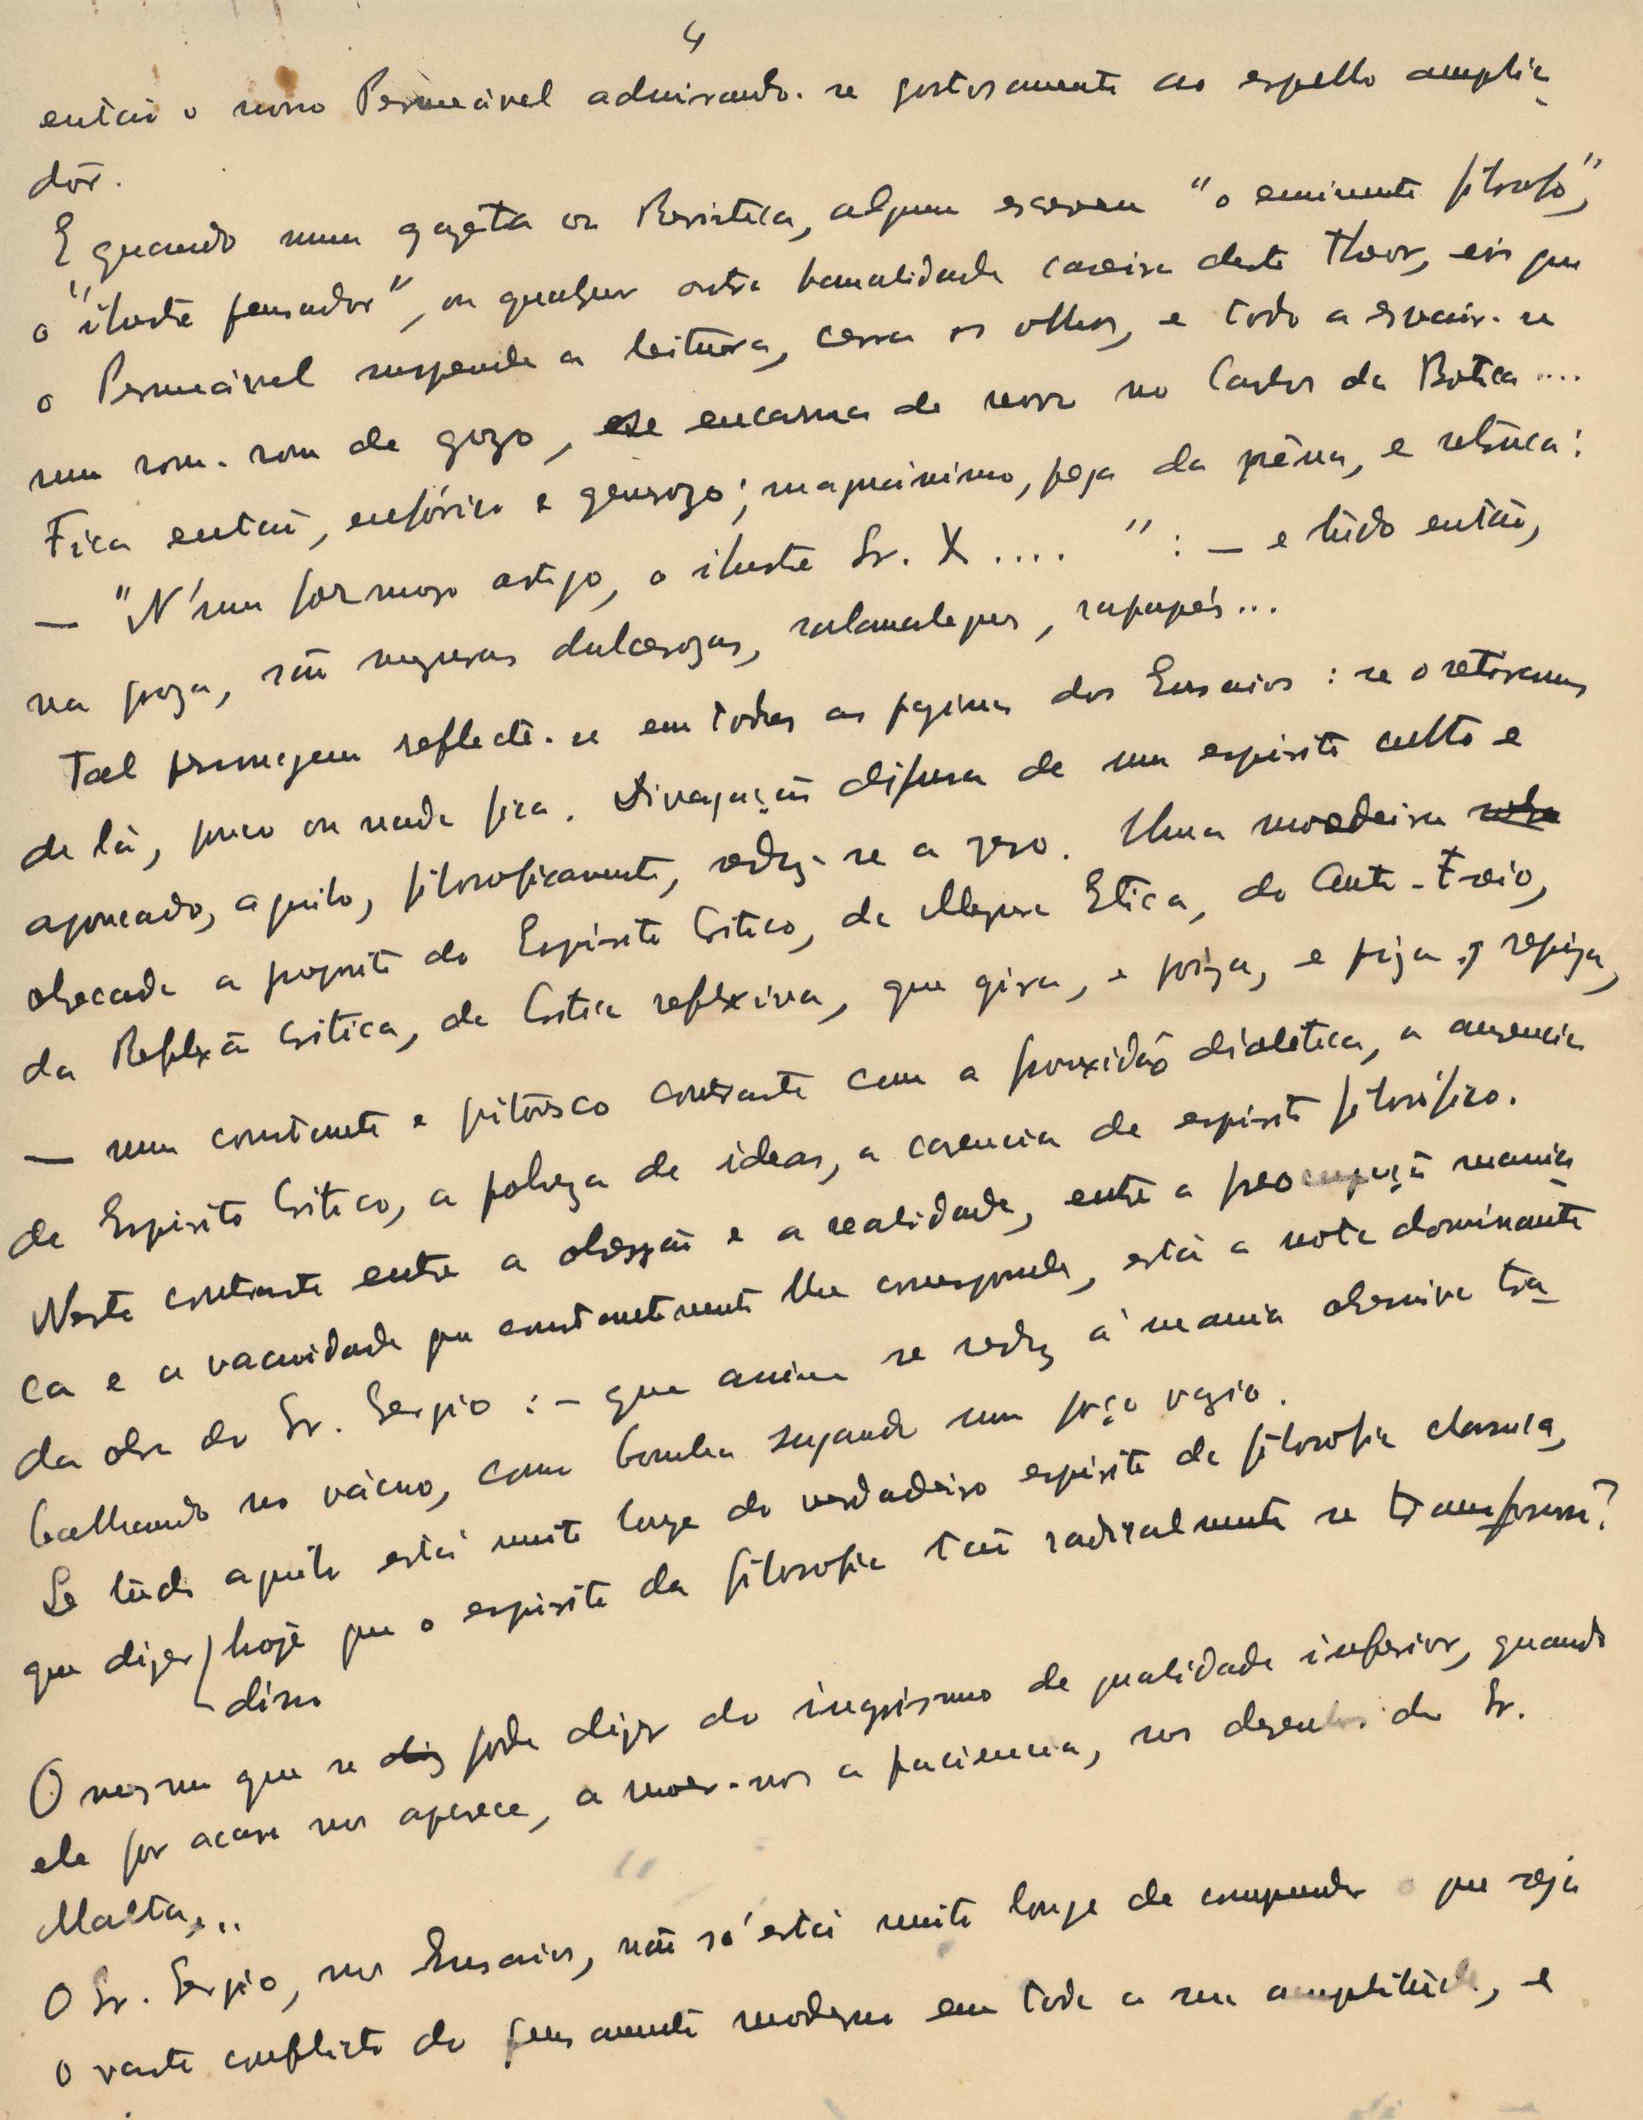 4
então o nosso Permeável admirando-se gostosamente ao espelho amplia-
dôr.
E quando numa gazeta ou Revista, alguem escreveu "o eminente filosofo",
o "ilustre pensador", ou qualquer outra banalidade caseira deste theor, eis que
o Permeável suspende a leitura, cerra os olhos, e todo a esvair-se
num rom-rom de gozo, se encarna de novo no Carlos da Botica....
Fica então, eufórico e generoso; magnânimo, pega da pêna, e retruca:
— "N'um formoso artigo, o ilustre Sr. X.... " : — e túdo então,
na proza, são meguras dulcerozas, salamaleques, rapapés...
Tal personagem reflecte-se em todas as paginas dos Ensaios : se o retiramos
de lá, pouco ou nada fica. Divagação difusa de um espirito culto e
apoucado, aquilo, filosoficamente, reduz-se a zero. Uma moedeira
obcecada a proposito do Espirito Critico, da Magna Etica, do Ante-Freio,
da Reflexão Critica, da Critica reflexiva, que gira, e poiza, e piza e repiza,
— num constante e pitôresco contraste com a frouxidão dialetica, a ausencia
de Espirito Critico, a pobreza de ideas, a carencia de espirito filosófico.
Neste contraste entre a obsessão e a realidade, entre a preocupação mania-
ca e a vacuidade que constantemente lhe corresponde, está a nota dominante
da obra do Sr. Sergio : — que assim se reduz á mania obsessiva tra-
balhando no vácuo, como bomba sugando num poço vazio.
Se túdo aquilo está muito longe do verdadeiro espirito da filosofia classica,
que dizer hoje que o espirito da filosofia tão radicalmente se transforma?
disso
O mesmo que se diz pode dizer do inguismo de qualidade inferior, quando
ele por acaso nos aparece, a moer-nos a paciencia, nos desenhos do Sr.
Malta...
O Sr. Sergio, nos Ensaios, não só está muito longe de compreender o que seja
o vasto conflicto do pensamento moderno em toda a sua amplitude, e